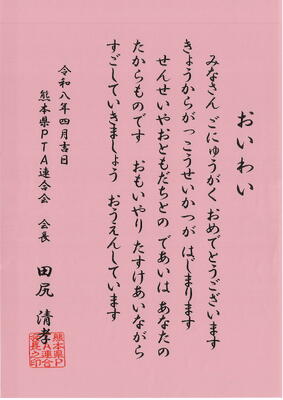 おいわい
みなさん ごにゅうがく おめでとうございます
きょうからがっこうせいかつが はじまります
せんせいやおともだちとの であいは あなたの
たからものです おもいやり たすけあいながら
すごしていきましょう おうえんしています
令和八年四月吉日
熊本県PTA連合会 会長 田尻 清孝
熊本県P
TA連合
会長之印